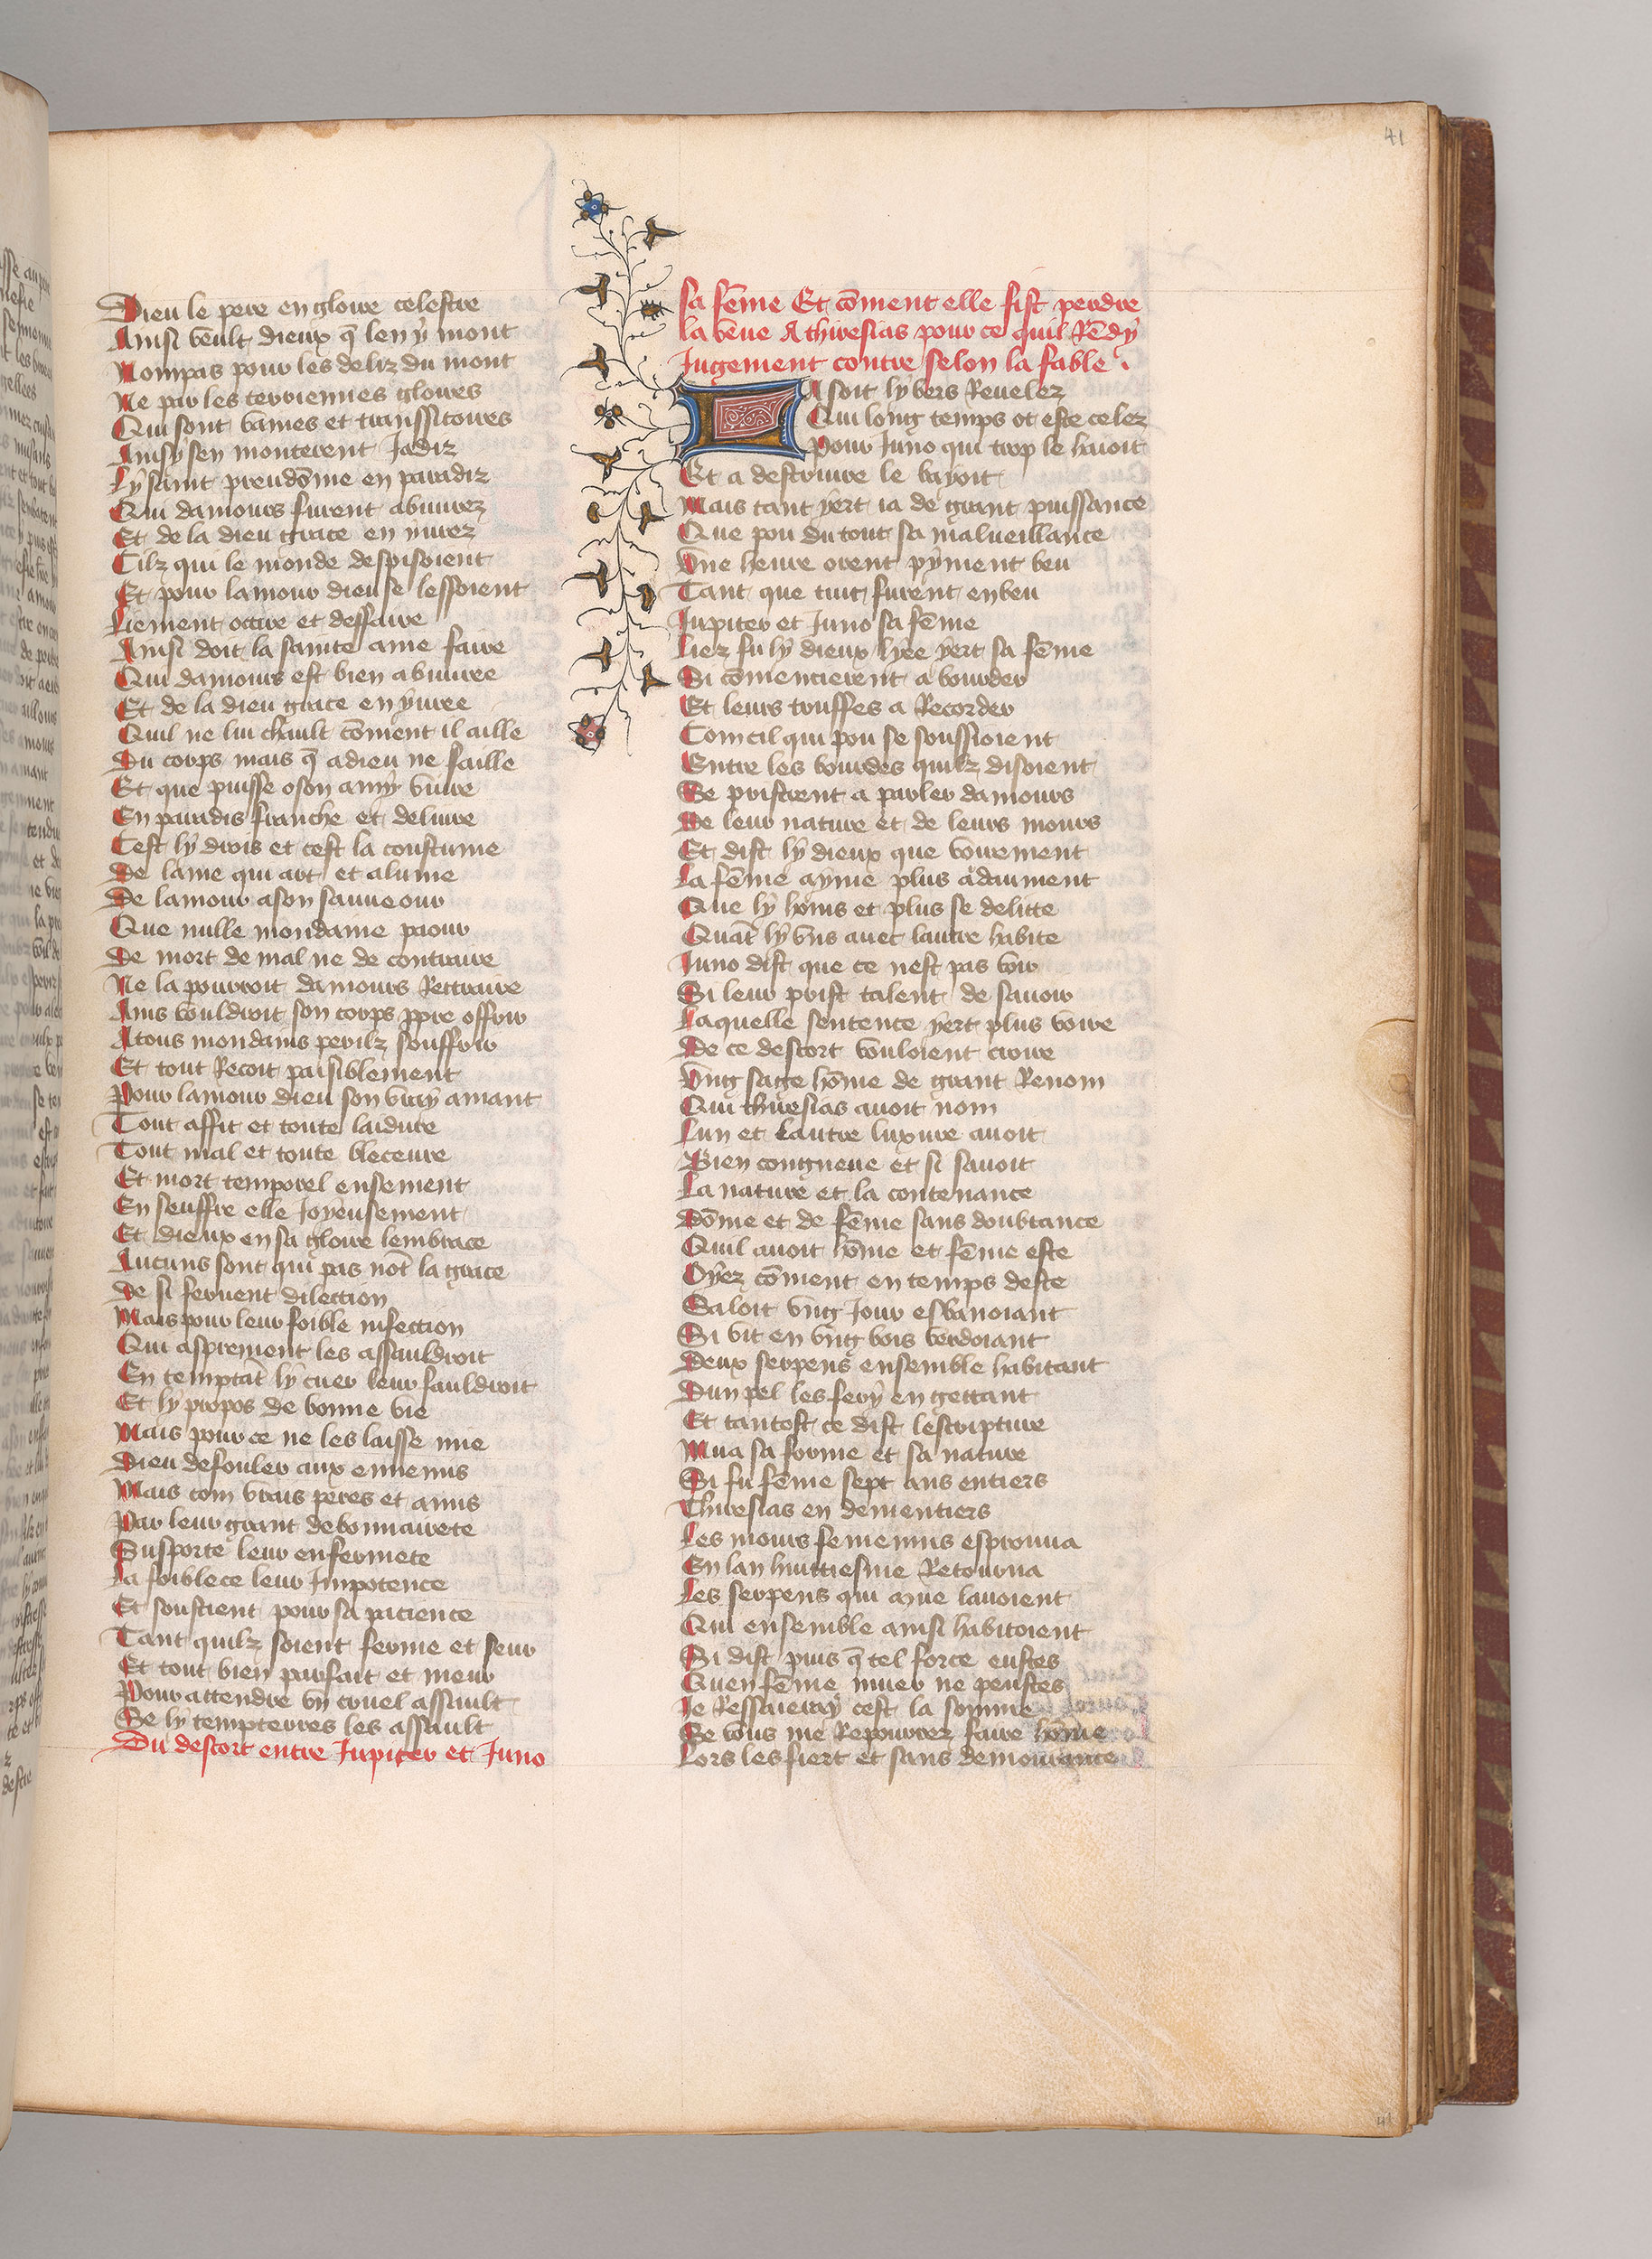 41
Dieu le pere en gloire celestre
Ainsi veult dieux q̄ len y mont
Nompas pour les deliz du mont
Ne par les terriennes gloires
Qui sont vaines et transsitoires
Ainsy sen monterent Jadiz
Ly saint preudōme en paradiz
Qui damours furent abuurez
Et de la dieu grace en yurez
Cilz qui le monde despisoient
Et pour lamour dieu se lessoient
Liement occire et deffaire
Ainsi doit la sainte ame faire
Qui damours est bien abuuree
Et de la dieu grace en yuree
Quil ne lui chault cōment il aille
Du corps mais q̄ a dieu ne faille
Et que puisse o son amy viure
En paradis franche et deliure
Cest ly drois et cest la coustume
De lame qui art et alume
De lamour a son sauueour
Que nulle mondaine paour
De mort de mal ne de contraire
Ne la pourroit damours Rettraire
Ains vouldroit son corps ppre offrir
A tous mondains perilz souffrir
Et tout Recoit paisiblement
Pour lamour dieu son vray amant
Tout affit et toute laidure
Tout mal et toute bleceure
Et mort temporel ensement
En seuffre elle Joyeusement
Et dieux en sa gloire lembrace
Aucuns sont qui pas nōt la grace
De si feruent dilection
Mais pour leur foible infection
Qui asprement les assauldroit
En temptāt ly cuer leur fauldroit
Et ly propos de bonne vie
Mais pour ce ne les laisse mie
Dieu defouler aux ennemis
Mais com vrais peres et amis
Par leur grant debonnairete
Supporte leur enfermete
La foiblece leur Impotence
Et soustient pour sa pacience
Tant quilz soient ferme et seur
Et tout bien parfait et meur
Pour attendre vn cruel assault
Se ly tempterres les assault
Du descort entre Jupiter et Juno
sa fēme Et cōment elle fist perdre
la veue A thiresias pour ce quil Rēdy
Jugement contre selon la fable .
A soit ly vers Reuelez
Qui long temps ot este celez
Pour Juno qui trop le haioit
Et a destruire le bayoit
Mais tant yert ia de grant puissance
Que pou du tout sa malueillance
Vne heure orent pyment beu
Tant que tuit furent enbeu
Jupiter et Juno sa fēme
Liez fu ly dieux lyee yert sa fēme
Si cōmencierent a bourder
Et leurs truffes a Recorder
Com cil qui pou se soussioient
Entre les bourdes quilz disoient
Se pristrent a parler damours
De leur nature et de leurs mours
Et dist ly dieux que voirement
La fēme ayme plus adaument
Que ly homs et plus se delitte
Quāt ly vns auec lautre habite
Juno dist que ce nest pas voir
Si leur prist talent de sauoir
Laquelle sentence yert plus voire
De ce descort vouloient croire
Vng sage hōme de grant Renom
Qui thiresias auoit nom
Lun et lautre luxure auoit
Bien congneue et si sauoit
La nature et la contenance
Dōme et de fēme sans doubtance
Quil auoit hōme et fēme este
Oyez cōment en temps deste
Saloit vng Jour esbanoiant
Si vit en vng bois verdoiant
Deux serpens ensemble habitant
Dun pel les fery en gettant
Et tantost ce dist lescripture
Mua sa forme et sa nature
Si fu fēme sept ans entiers
Thiresias en dementiers
Les mours femenins esprouua
En lan huittiesme Retourna
Les serpens qui mue lauoient
Qui ensemble ainsi habitoient
Si dist puis q̄ tel force eustes
Quen fēme muer ne peustes
Je Ressaieray cest la somme
Se vous me Repourrez faire hōme
Lors les fiert et sans demourance
41